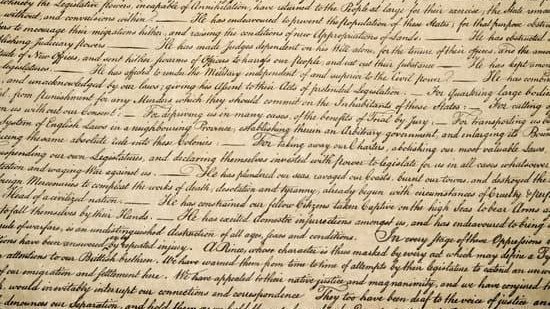 whereby the Legislative powers, incapable of Annihilation, have returned to the People at large for their exercise; the State remai
without, and convulsions within. — He has endeavoured to prevent the population of these States; for that purpose obstruc
to encourage their migrations hither, and raising the conditions of new Appropriations of Lands. — He has obstructed
blishing Judiciary powers. — He has made Judges dependent on his Will alone, for the tenure of their offices, and the amou
titude of New Offices, and sent hither swarms of Officers to harrass our people, and eat out their substance. — He has kept among
legislatures. — He has affected to render the Military independent of and superior to the Civil power. — He has combin
and unacknowledged by our laws; giving his Assent to their Acts of pretended Legislation: — For Quartering large bodies
from punishment for any Murders which they should commit on the Inhabitants of these States: — For cutting
on us without our Consent: — For depriving us in many cases, of the benefits of Trial by jury: — For transporting us be
System of English Laws in a neighbouring Province, establishing therein an Arbitrary government, and enlarging its Bou
ducing the same absolute rule into these Colonies: — For taking away our Charters, abolishing our most valuable Laws
uspending our own Legislatures, and declaring themselves invested with power to legislate for us in all cases whatsoever.
ection and waging War against us. — He has plundered our seas, ravaged our Coasts, burnt our towns, and destroyed the
reign Mercenaries to compleat the works of death, desolation and tyranny, already begun with circumstances of Cruelty & per
Head of a civilized nation. — He has constrained our fellow Citizens taken Captive on the high Seas to bear Arms a
to fall themselves by their Hands. — He has excited domestic insurrections amongst us, and has endeavoured to bring
rule of warfare, is an undistinguished destruction of all ages, sexes and conditions. In every stage of these Oppressions
tions have been answered by repeated injury. A Prince, whose character is thus marked by every act which may define a Ty
attentions to our Brittish brethren. We have warned them from time to time of attempts by their legislature to extend an unwar
of our emigration and settlement here. We have appealed to their native justice and magnanimity, and we have conjured
would inevitably interrupt our connections and correspondence. They too have been deaf to the voice of justice an
denounces our Separation, and hold them